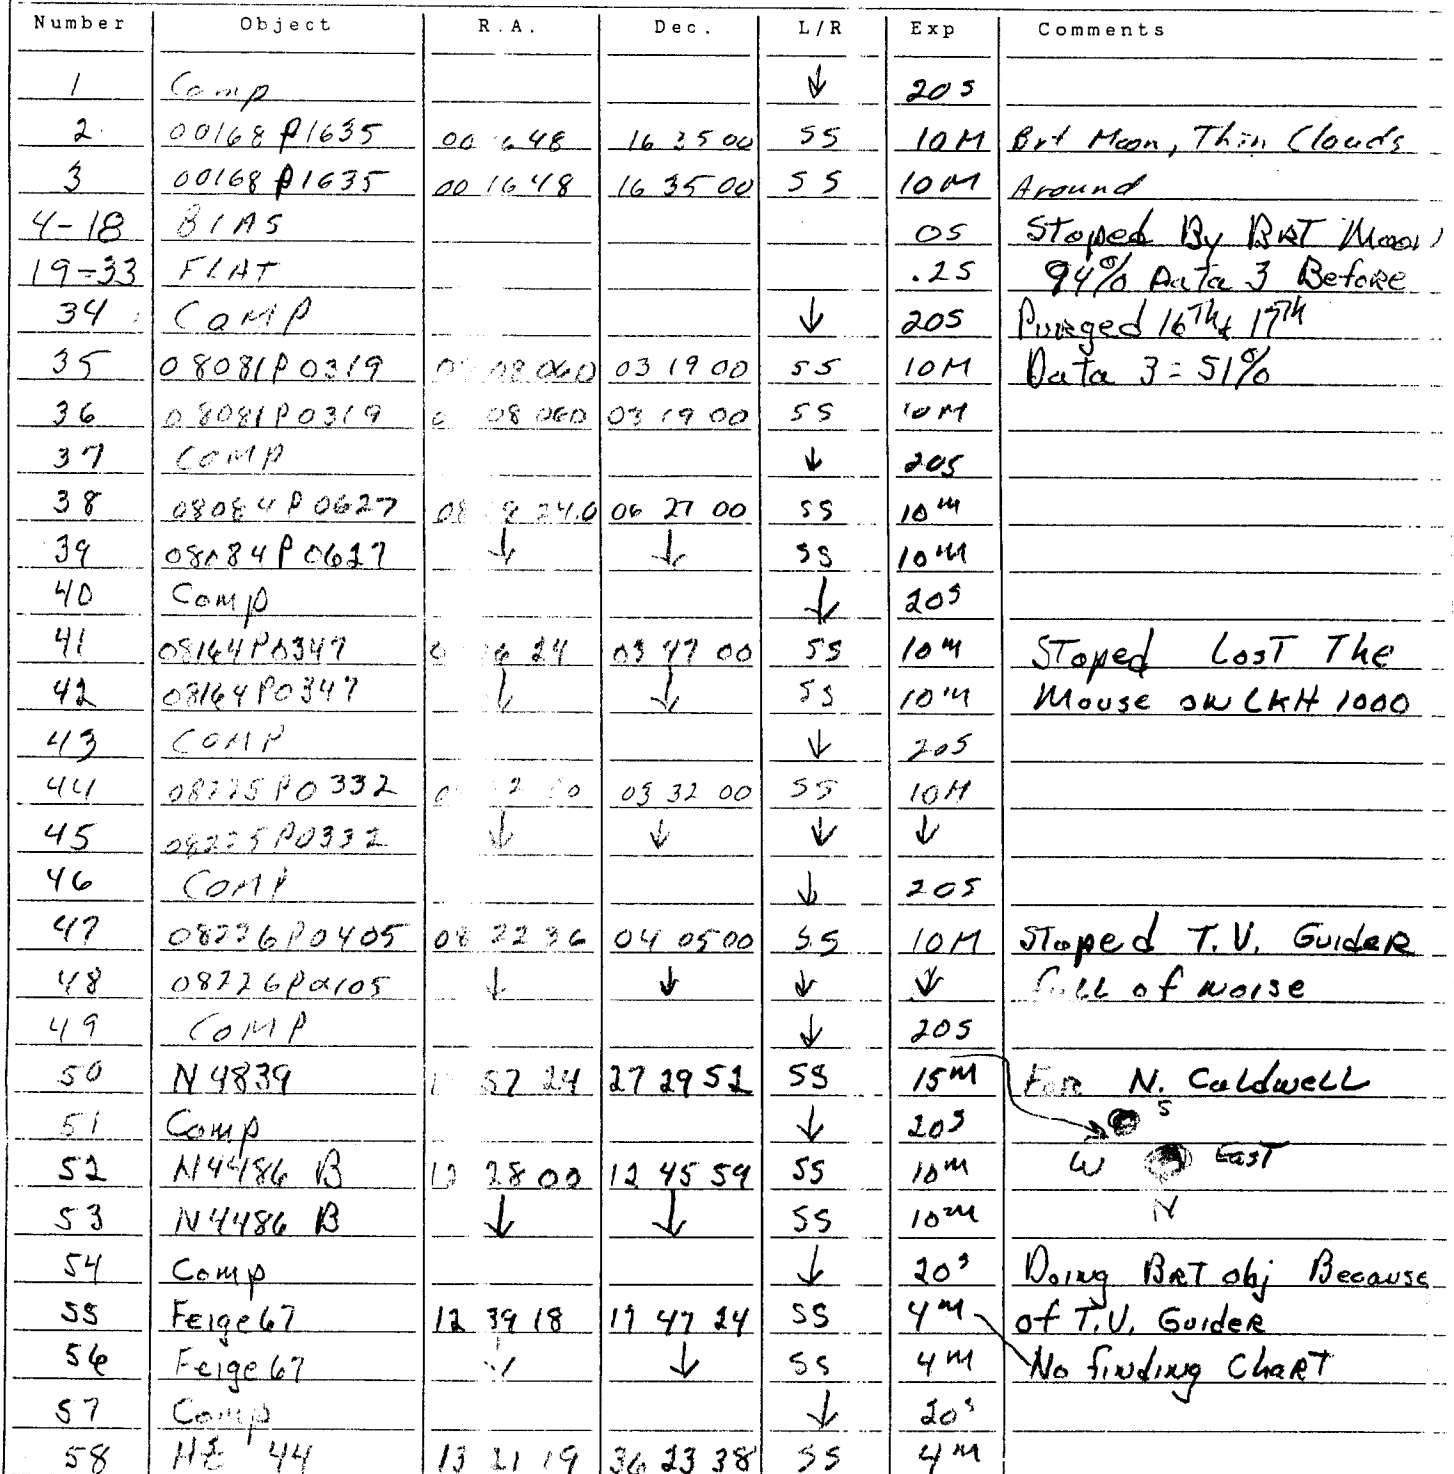 Number Object R.A. Dec. L/R Exp Comments
1 Comp ↓ 20S
2 00168P1635 00 48 16 35 00 SS 10M Brt Moon, Thin Clouds
3 00168P1635 00 16 48 16 35 00 SS 10M Around
4-18 BIAS 0S Stoped By BRT Moon
19-33 FLAT .2S 94% Data 3 Before
34 COMP ↓ 20S Purged 16Th & 17Th
35 08081P0319 08 060 03 19 00 SS 10M Data 3 = 51%
36 08081P0319 08 060 03 19 00 SS 10M
37 COMP ↓ 20S
38 08084P0627 08 24.0 06 27 00 SS 10M
39 08084P0627 ↓ ↓ SS 10M
40 Comp ↓ 20S
41 08164P0347 16 24 03 47 00 SS 10M Stoped Lost The
42 08164P0347 ↓ ↓ SS 10M Mouse on LKH 1000
43 COMP ↓ 20S
44 08225P0332 03 32 00 SS 10M
45 08225P0332 ↓ ↓ ↓ ↓
46 COMP ↓ 20S
47 08226P0405 08 22 36 04 05 00 SS 10M Stoped T.V. Guider
48 08226P0405 ↓ ↓ ↓ ↓ full of noise
49 COMP ↓ 20S
50 N4839 57 24 27 29 52 SS 15M For N. Caldwell
S
51 Comp ↓ 20S
52 N4486 B 12 28 00 12 45 59 SS 10M W East
53 N4486 B ↓ ↓ SS 10M N
54 Comp ↓ 20S Doing BRT obj Because
55 Feige67 12 39 18 17 47 24 SS 4M of T.V. Guider
56 Feige67 ↓ ↓ SS 4M No finding Chart
57 Comp ↓ 20S
58 HZ 44 13 21 19 36 23 38 SS 4M